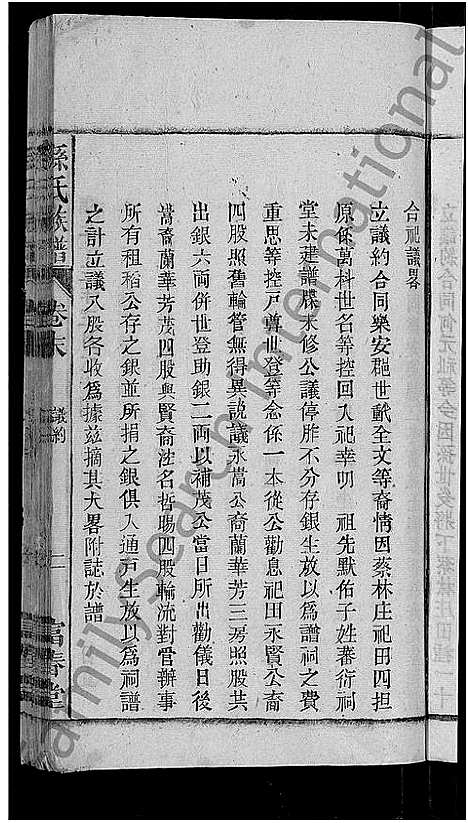 合祀議畧
立議約合同樂安郡世毓全文等裔情因蔡林庄祀田四担
原係萬科世名等控回入祀幸叨　祖先默佑子姓蕃衍祠
堂未建譜牒未修公議停胙不分存銀生放以爲譜祠之費
重思等控戸尊世登等僉係一本從公勸息祀田永賢公裔
四股照舊輪管無得異說議永嵩公裔蘭華芳三房照股共
出銀六両併世登助銀二両以補茂公當日所出勸儀日後
嵩裔蘭華芳茂四股與賢裔洼名哲賜四股輪流對管辦事
所有租稻公存之銀並所捐之銀俱入通戸生放以爲祠譜
之計立議八股各收爲據茲摘其大畧附誌於譜
孫氏族譜
卷末
議約
二
富春堂
Family Search International